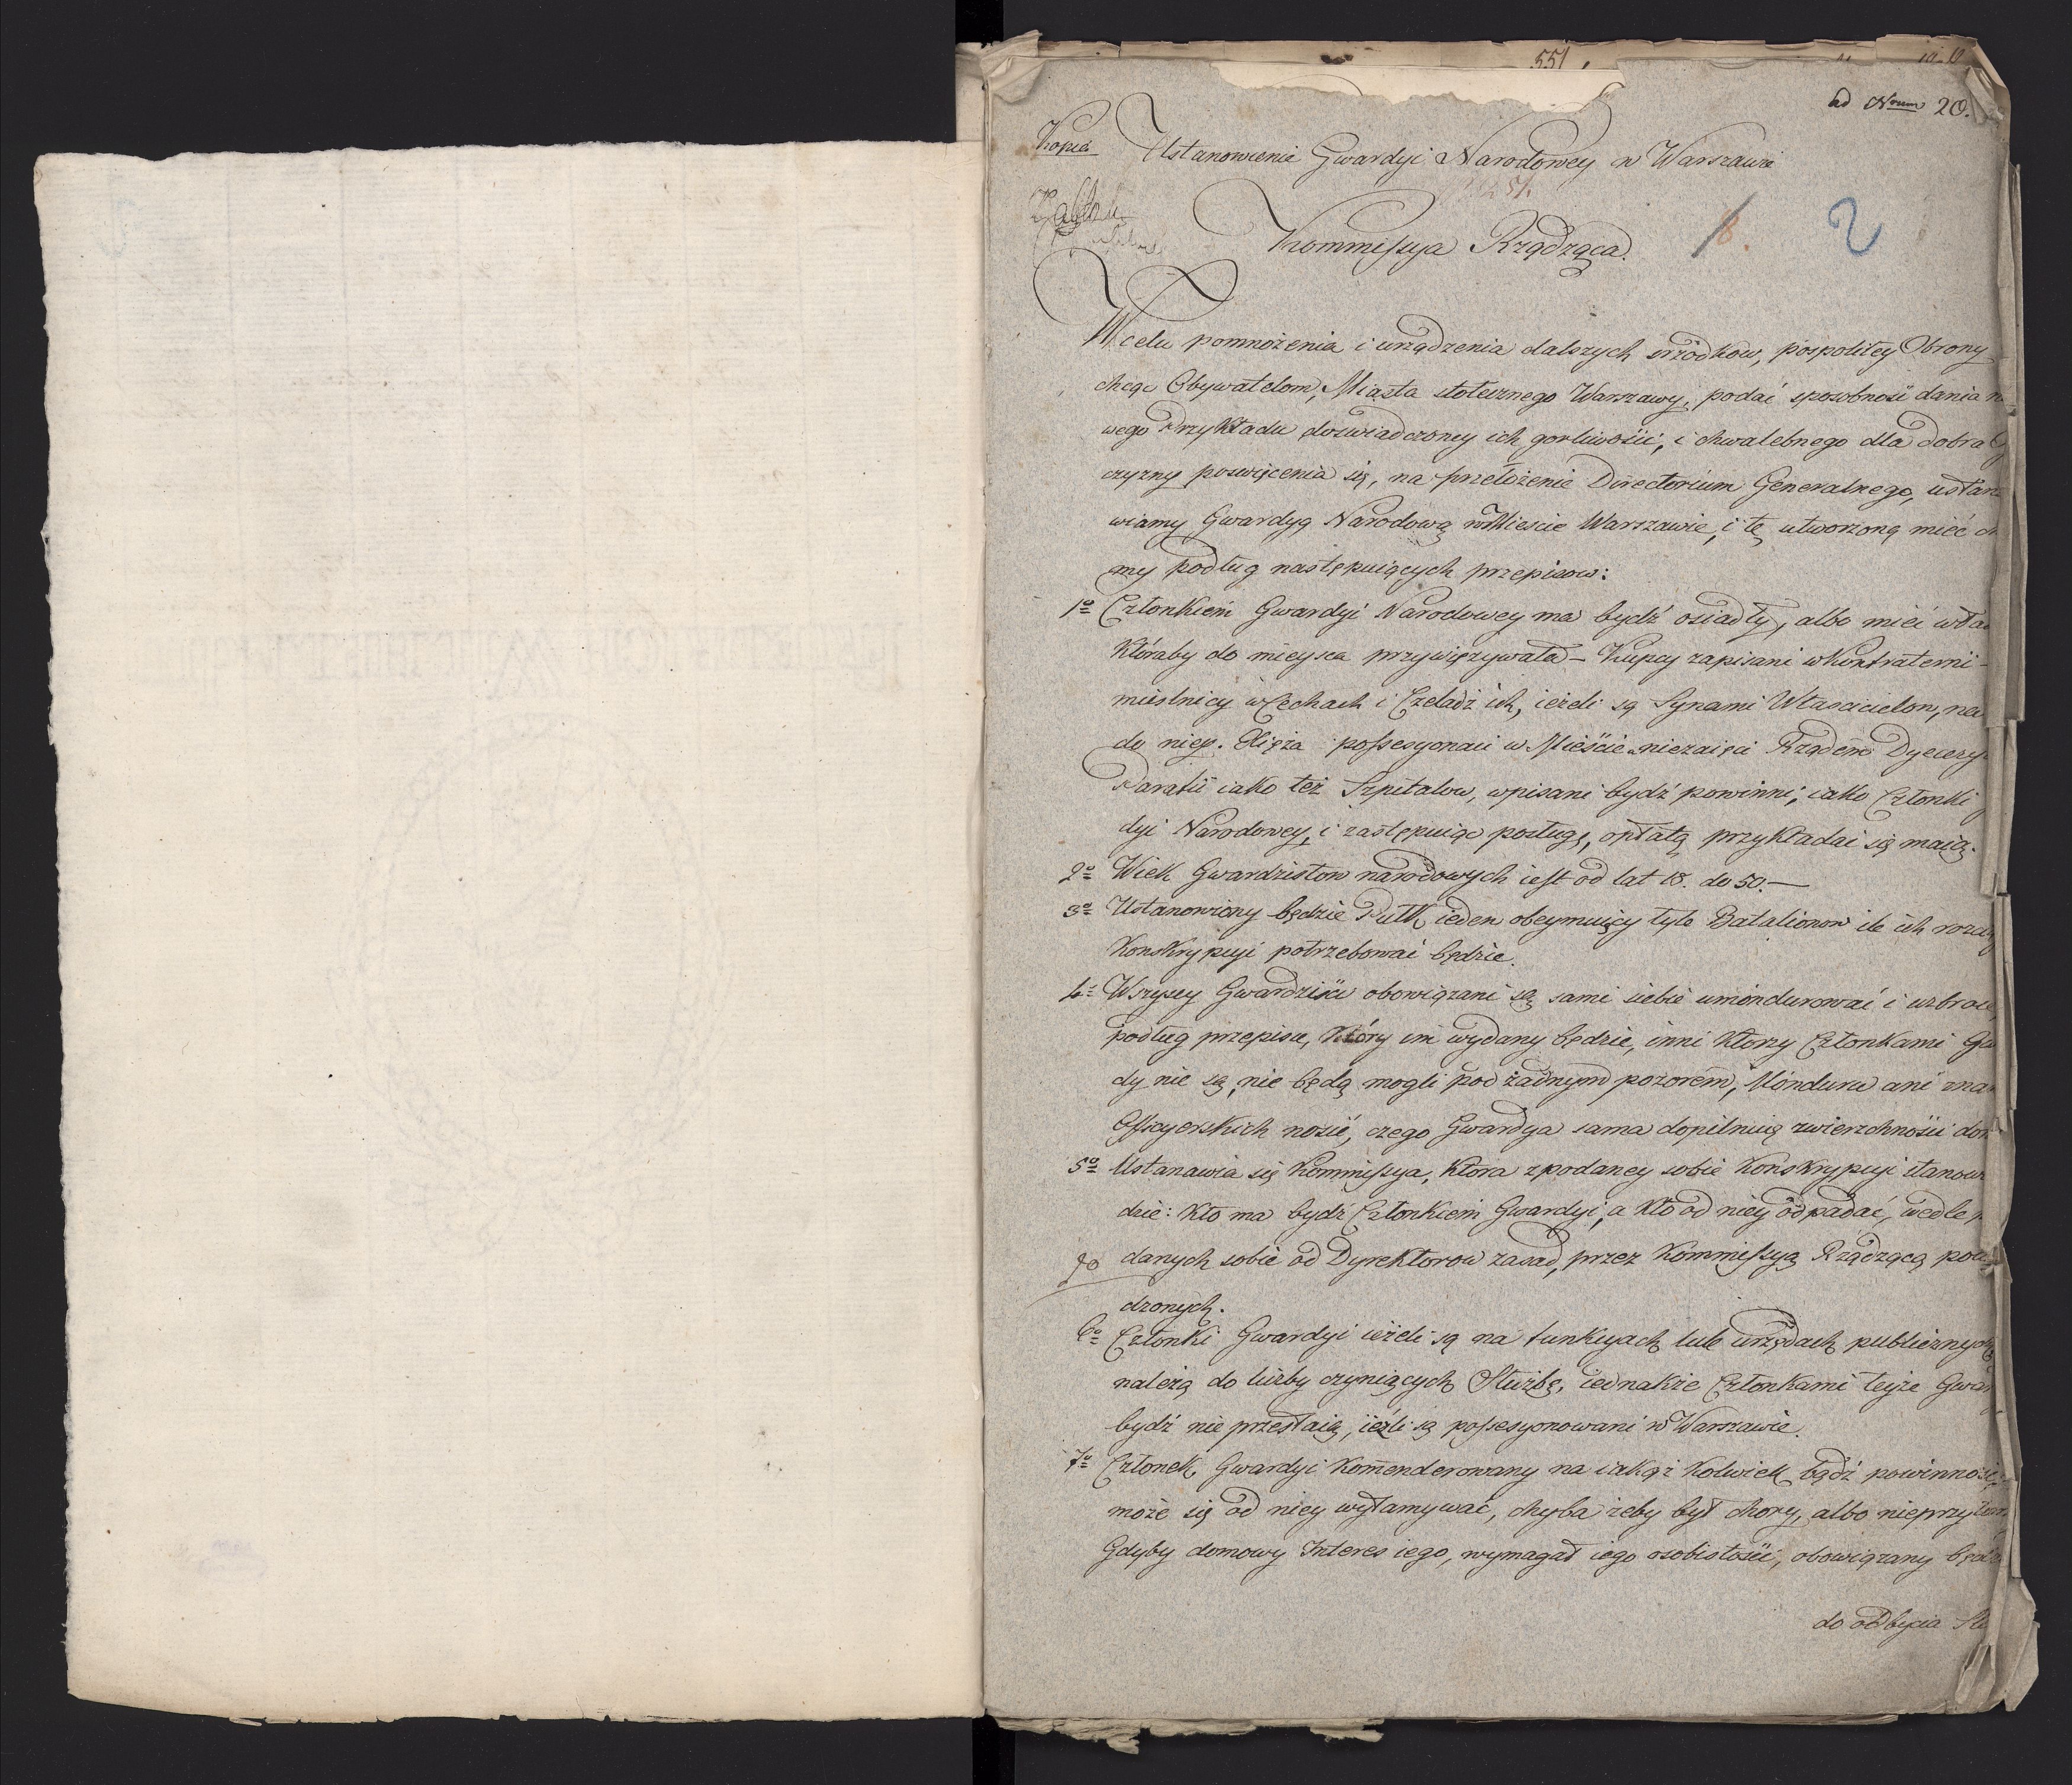 551.
ad Nrum 20.
Kopia
Ustanowienie Gwardyi Narodowey w Warszawie
51.
Kommissya Rządząca.
18.
2
W celu pomnożenia i urządzenia dalszych srzodkow, pospolitey Obrony
chcąc Obywatelom, Miasta stołecznego Warszawy, podać sposobność dania
wego Przykładu doświadczoney ich gorliwości, i chwalebnego dla dobra
czyzny poswięcenia się, na przełożenie Directorium Generalnego, ustano
wiamy Gwardyą Narodową w Mieście Warszawie, i tę utworzoną mieć
my podług następuiących przepisow:
1o Członkiem Gwardyi Narodowey ma bydź osiadły, albo mieć wła
któraby do mieysca przywięzywała – Kupcy zapisani w Konfraternii –
mieślnicy w Cechach i Czeladź ich, ieżeli są Synami Właścicielow, na
do niey. Xięża possesyonaci w Mieście niezaięci Rządem Dyecezy
Parafii iako też Szpitalow, wpisani bydź powinni, iako Członki
dyi Narodowey, i zastępuiąc posługę, opłatą przykładać się maią.
2o Wiek Gwardzistow narodowych iest od lat 18. do 50. —
3o Ustanowiony będzie Pułk ieden obeymuiący tyle Batalionow ile ich
Konskrypcyi potrzebować będzie.
4o Wszyscy Gwardziści obowiązani są sami siebie umóndurować i uzbroić,
podług przepisu, który im wydany będzie, inni ktorzy Członkami Gwa
dy nie są, nie będą mogli pod żadnym pozorem, Móndura ani zna
Officyerskich nosić, czego Gwardya sama dopilnuią zwierzchności don
5o Ustanawia się Kommissya, ktora z podaney sobie Konskrypcyi stanow
dzie: kto ma bydź Członkiem Gwardyi, a kto od niey odpadać, wedle
danych sobie od Dyrektorow zasad, przez Kommissyą Rządzącą potw
dzonych.
6o Członki Gwardyi ieżeli są na funkcyach lub urzędach publicznych
należą do liczby czyniących Służbę, iednakże Członkami teyże Gwar
bydź nie przestaią, ieżli są possesyonowani w Warszawie.
7o Członek Gwardyi komenderowany na iakąż kolwiek bądź powinność
może się od niey wyłamywać, chyba żeby był chory, albo nieprzytom
Gdyby domowy Interes iego, wymagał iego osobistości, obowiązany będzie
do odbycia Słu